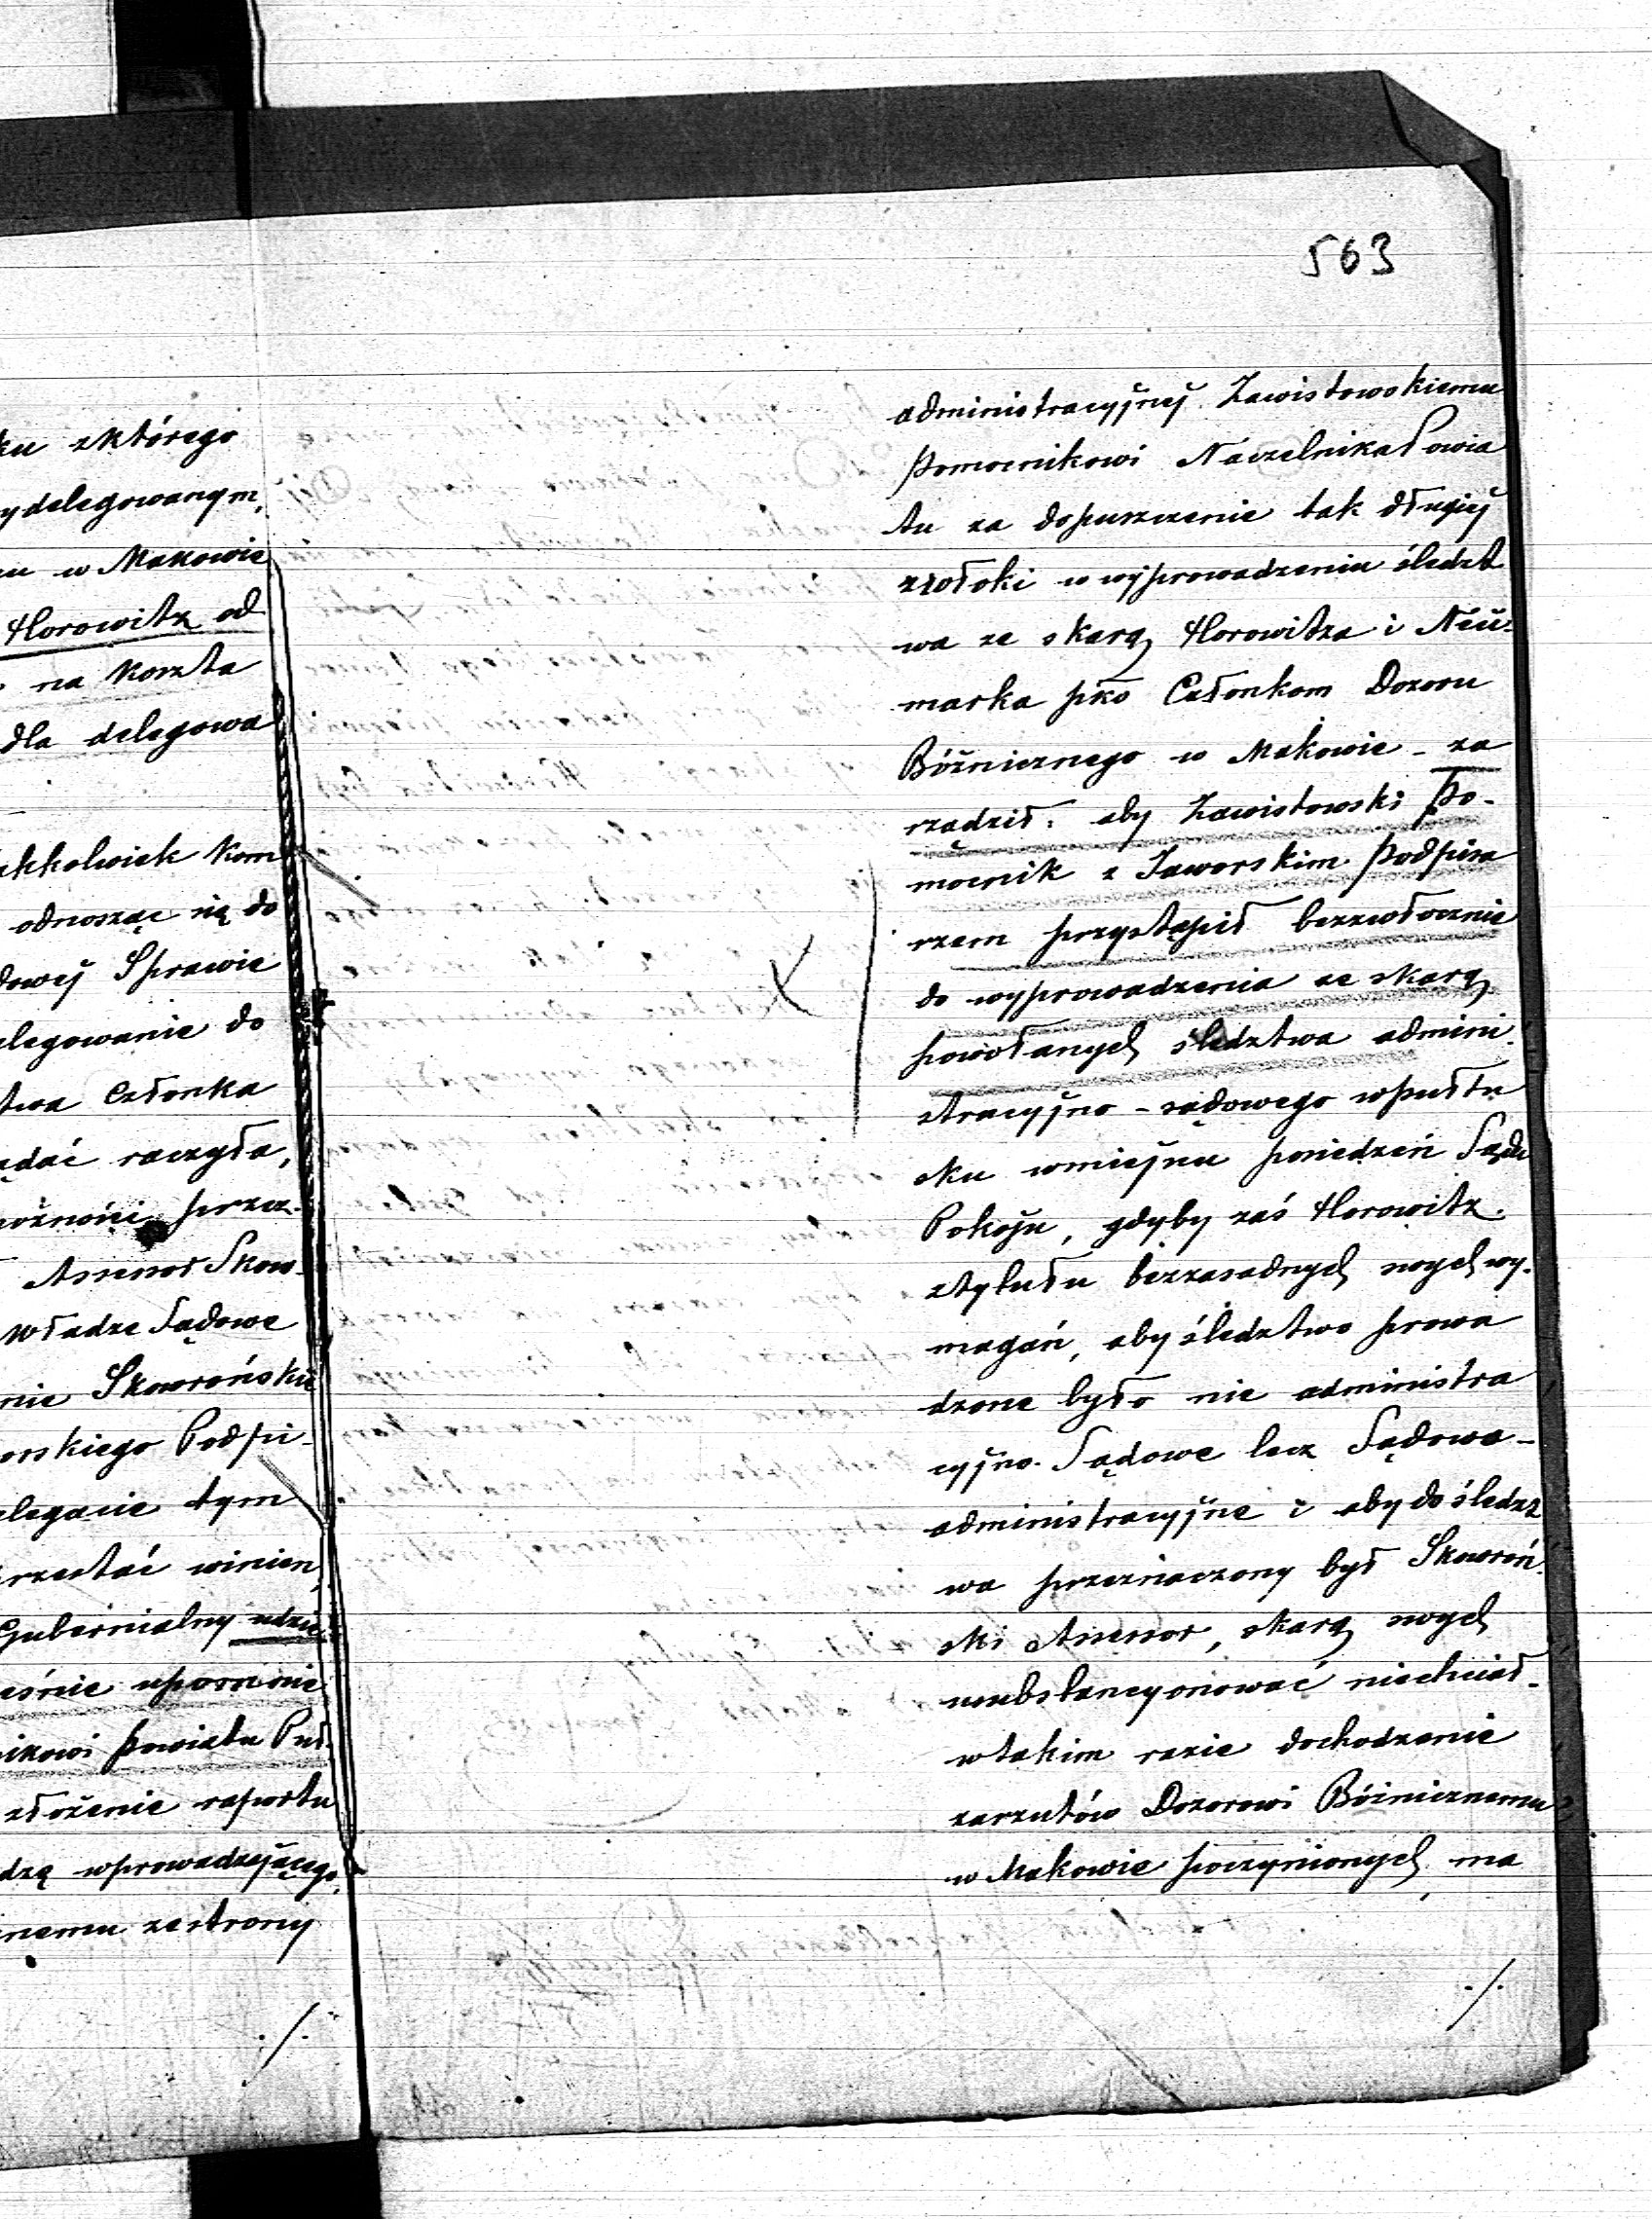 ku zktórego
ydelegowanym,
u w Makowie
Horowitz od
na koszta
dla delegowa
akkolwiek Kom
odnosząc się do
dowéj Sprawie
elegowanie do
twa Członka
ądać raczyła,
ożności przez
Assessor Skow-
Władze Sądowe
nie Skworońskie
orskiego Podpi-
elegacie tym
rzestać winien,
Gubernialny udzie
eśnie upomnie
nikowi powiatu Puł-
złożenie raportu
dzą wprowadzającego,
nemu zestrony
./.
563
administracyjnéj Zawistowskiemu
pomocnikowi Naczelnika Powia
tu za dopuszczenie tak długiéj
zwłoki w wyprowadzeniu śledzt
wa ze skarg Horowitza i Neu-
marka pko Członkom Dozoru
Bóżnicznego w Makowie – za
rządził: aby Zawistowski Po-
mocnik z Jaworskim Podpisa
rzem przystąpił bezzwłocznie
do wyprowadzenia ze skarg
powołanych śledztwa admini-
stracyjno – sądowego wpułtu
sku wmiejscu posiedzeń Sądu
Pokoju, gdyby zaś Horowitz
ztytułu bezzasadnych swych wy-
magań, aby śledztwo prowa
dzone było nie administra
cyjno-Sądowe lecz Sądowo-
administracyjne i aby do śledzt
wa przeznaczony był Skworoń-
ski Assessor, skarg swych
usubstancyonować niechciał-
wtakim razie dochodzenie
zarzutów Dozorowi Bóżnicznemu
w Makowie poczynionych, ma
./.